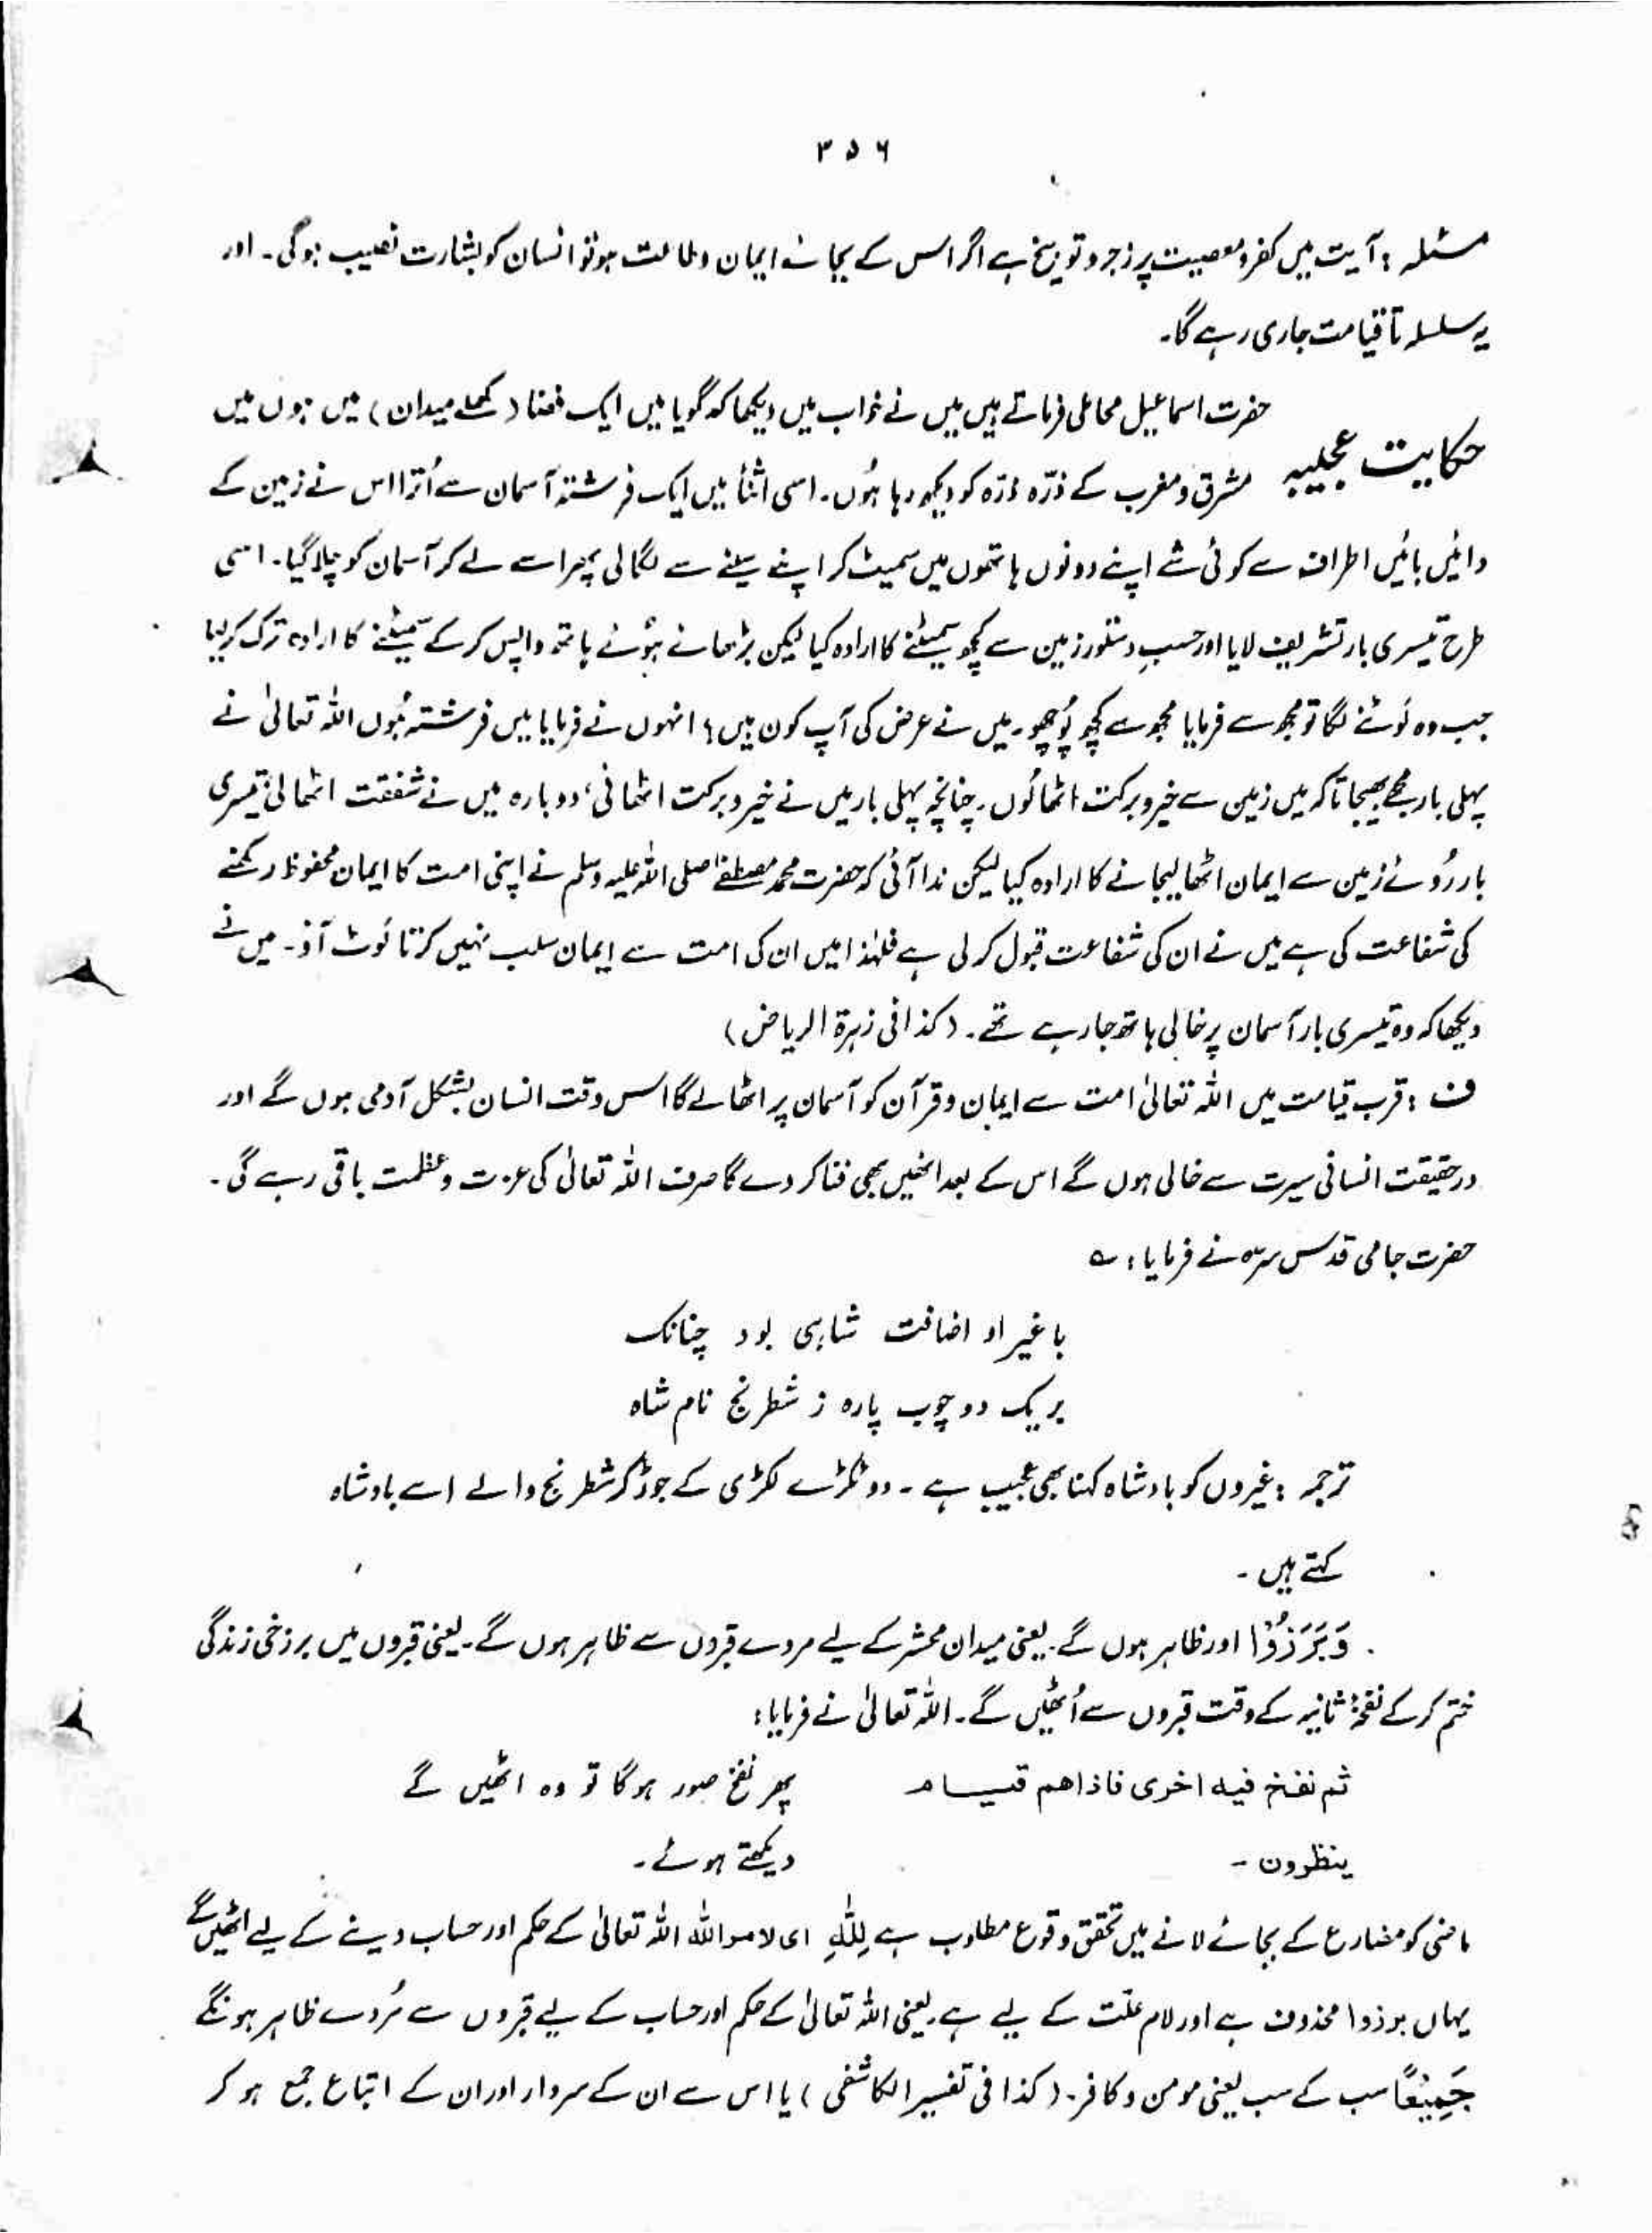 ۳۵۶
مسئلہ : آیت میں کفر و معصیت پر زجر و توبیخ ہے اگر اس کے بجائے ایمان و طاعت ہو تو انسان کو بشارت نصیب ہوگی۔ اور
یہ سلسلہ تا قیامت جاری رہے گا۔
حکایت عجیبہ
حضرت اسماعیل محاملی فرماتے ہیں میں نے خواب میں دیکھا کہ گویا میں ایک فضا (کھلے میدان) میں ہوں میں
مشرق و مغرب کے ذرّہ ذرّہ کو دیکھ رہا ہُوں۔ اسی اثنا میں ایک فرشتہ آسمان سے اُترا اس نے زمین کے
دائیں بائیں اطراف سے کوئی شے اپنے دونوں ہاتھوں میں سمیٹ کر اپنے سینے سے لگالی پھر اسے لے کر آسمان کو چلا گیا۔ اسی
طرح تیسری بار تشریف لایا اور حسبِ دستور زمین سے کچھ سمیٹنے کا ارادہ کیا لیکن بڑھائے ہوئے ہاتھ واپس کر کے سمیٹنے کا ارادہ ترک کر لیا
جب وہ لَوٹنے لگا تو مجھ سے فرمایا مجھ سے کچھ پُوچھو۔ میں نے عرض کی آپ کون ہیں؟ انہوں نے فرمایا میں فرشتہ ہُوں اللہ تعالیٰ نے
پہلی بار مجھے بھیجا تاکہ میں زمین سے خیر و برکت اٹھاؤں۔ چنانچہ پہلی بار میں نے خیر و برکت اٹھائی، دوبارہ میں نے شفقت اٹھالی تیسری
بار رُوئے زمین سے ایمان اٹھا لیجانے کا ارادہ کیا لیکن ندا آئی کہ حضرت محمد مصطفےٰ صلی اللہ علیہ وسلم نے اپنی امت کا ایمان محفوظ رکھنے
کی شفاعت کی ہے میں نے ان کی شفاعت قبول کر لی ہے فلہٰذا میں ان کی امت سے ایمان سلب نہیں کرتا لَوٹ آؤ۔ میں نے
دیکھا کہ وہ تیسری بار آسمان پر خالی ہاتھ جا رہے تھے۔ (کذا فی زہرۃ الریاض)
ف : قرب قیامت میں اللہ تعالیٰ امت سے ایمان و قرآن کو آسمان پر اٹھا لے گا اس وقت انسان بشکل آدمی ہوں گے اور
درحقیقت انسانی سیرت سے خالی ہوں گے اس کے بعد انھیں بھی فنا کر دے گا صرف اللہ تعالیٰ کی عزت و عظمت باقی رہے گی۔
حضرت جامی قدس سرہ نے فرمایا : ؎
با غیر او اضافت شاہی بود چنانک
بر یک دو چوب پارہ ز شطرنج نام شاہ
ترجمہ : غیروں کو بادشاہ کہنا بھی عجیب ہے۔ دو ٹکڑے لکڑی کے جوڑ کر شطرنج والے اسے بادشاہ
کہتے ہیں۔
وَبَرَزُوْا اور ظاہر ہوں گے۔ یعنی میدان محشر کے لیے مردے قبروں سے ظاہر ہوں گے۔ یعنی قبروں میں برزخی زندگی
ختم کر کے نفخۂ ثانیہ کے وقت قبروں سے اُٹھیں گے۔ اللہ تعالیٰ نے فرمایا :
ثم نفخ فیه اخری فاذاهم قیام پھر نفخ صور ہوگا تو وہ اٹھیں گے
ینظرون۔ دیکھتے ہوئے۔
ماضی کو مضارع کے بجائے لانے میں تحقق وقوع مطلوب ہے لِلّٰهِ ای لامر اللہ اللہ تعالیٰ کے حکم اور حساب دینے کے لیے اٹھیں گے
یہاں برزوا محذوف ہے اور لام علّت کے لیے ہے۔ یعنی اللہ تعالیٰ کے حکم اور حساب کے لیے قبروں سے مُردے ظاہر ہونگے
جَمِيْعًا سب کے سب یعنی مومن و کافر۔ (کذا فی تفسیر الکاشفی) یا اس سے ان کے سردار اور ان کے اتباع جمع ہو کر